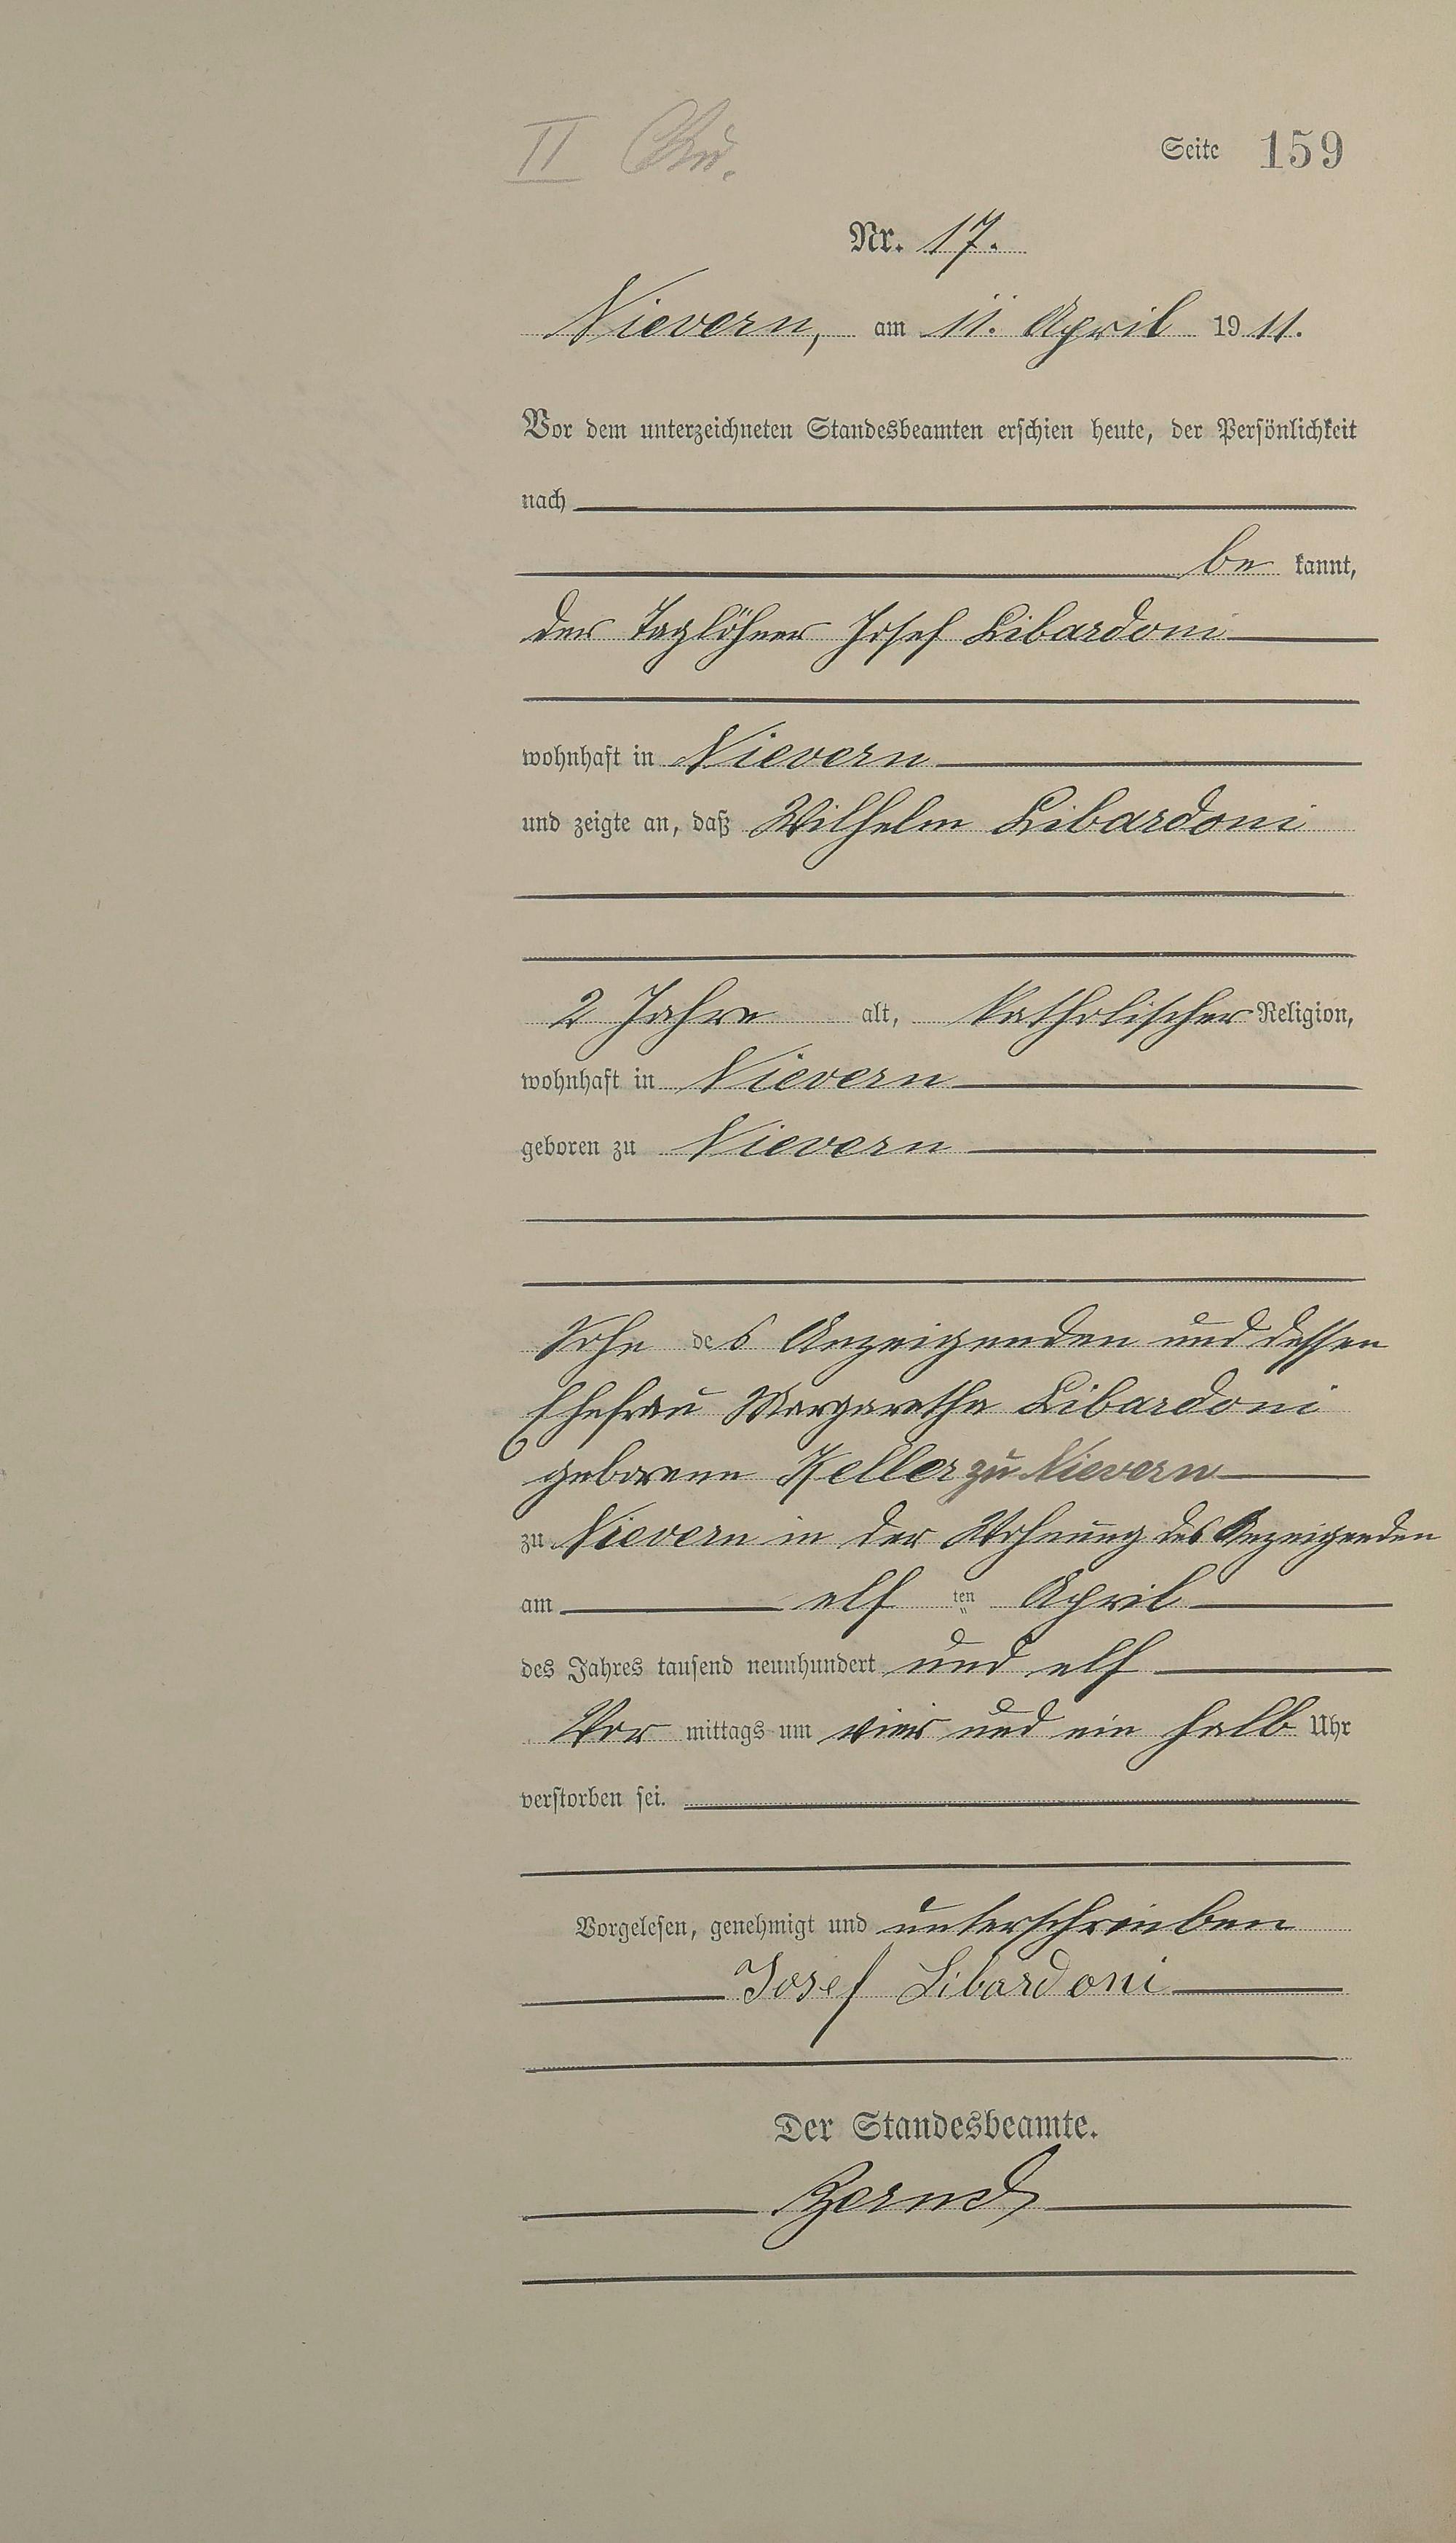 II
Seite 159
Nr. 17.
Nievern, am 11. April 1911.
Vor dem unterzeichneten Standesbeamten erschien heute, der Persönlichkeit
nach
be kannt,
der Taglöhner Josef Libardoni
wohnhaft in Nievern
und zeigte an, daß Wilhelm Libardoni
2 Jahre alt, katholischer Religion,
wohnhaft in Nievern
geboren zu Nievern
Sohn des Anzeigenden und dessen
Ehefrau Margaretha Libardoni
geborene Keller zu Nievern
zu Nievern in der Wohnung des Anzeigenden
am elf ten April
des Jahres tausend neunhundert und elf
Vor mittags um vier und ein halb Uhr
verstorben sei.
Vorgelesen, genehmigt und unterschrieben
Josef Libardoni
Der Standesbeamte.